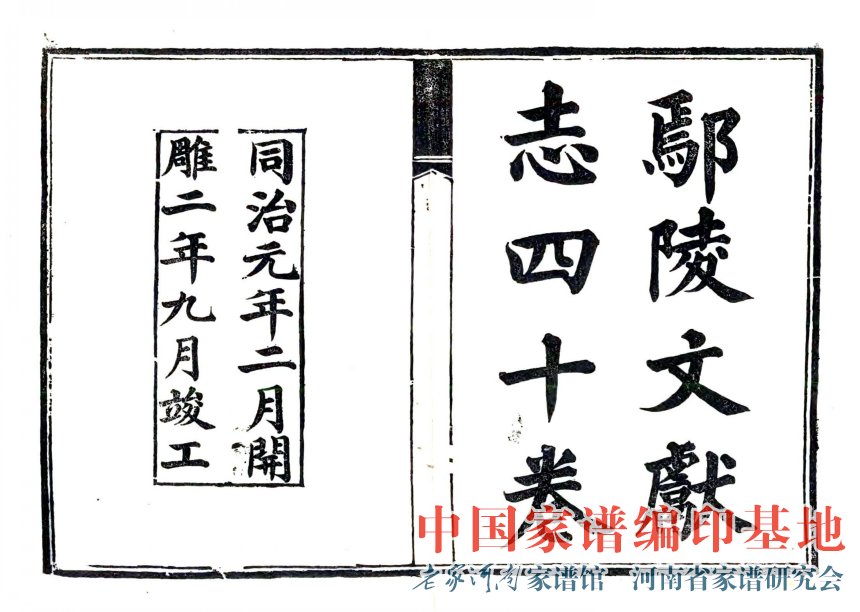 鄢陵文獻
志四十卷
同治元年二月開
雕二年九月竣工
中国家谱编印基地
老家河南家谱馆 河南省家谱研究会